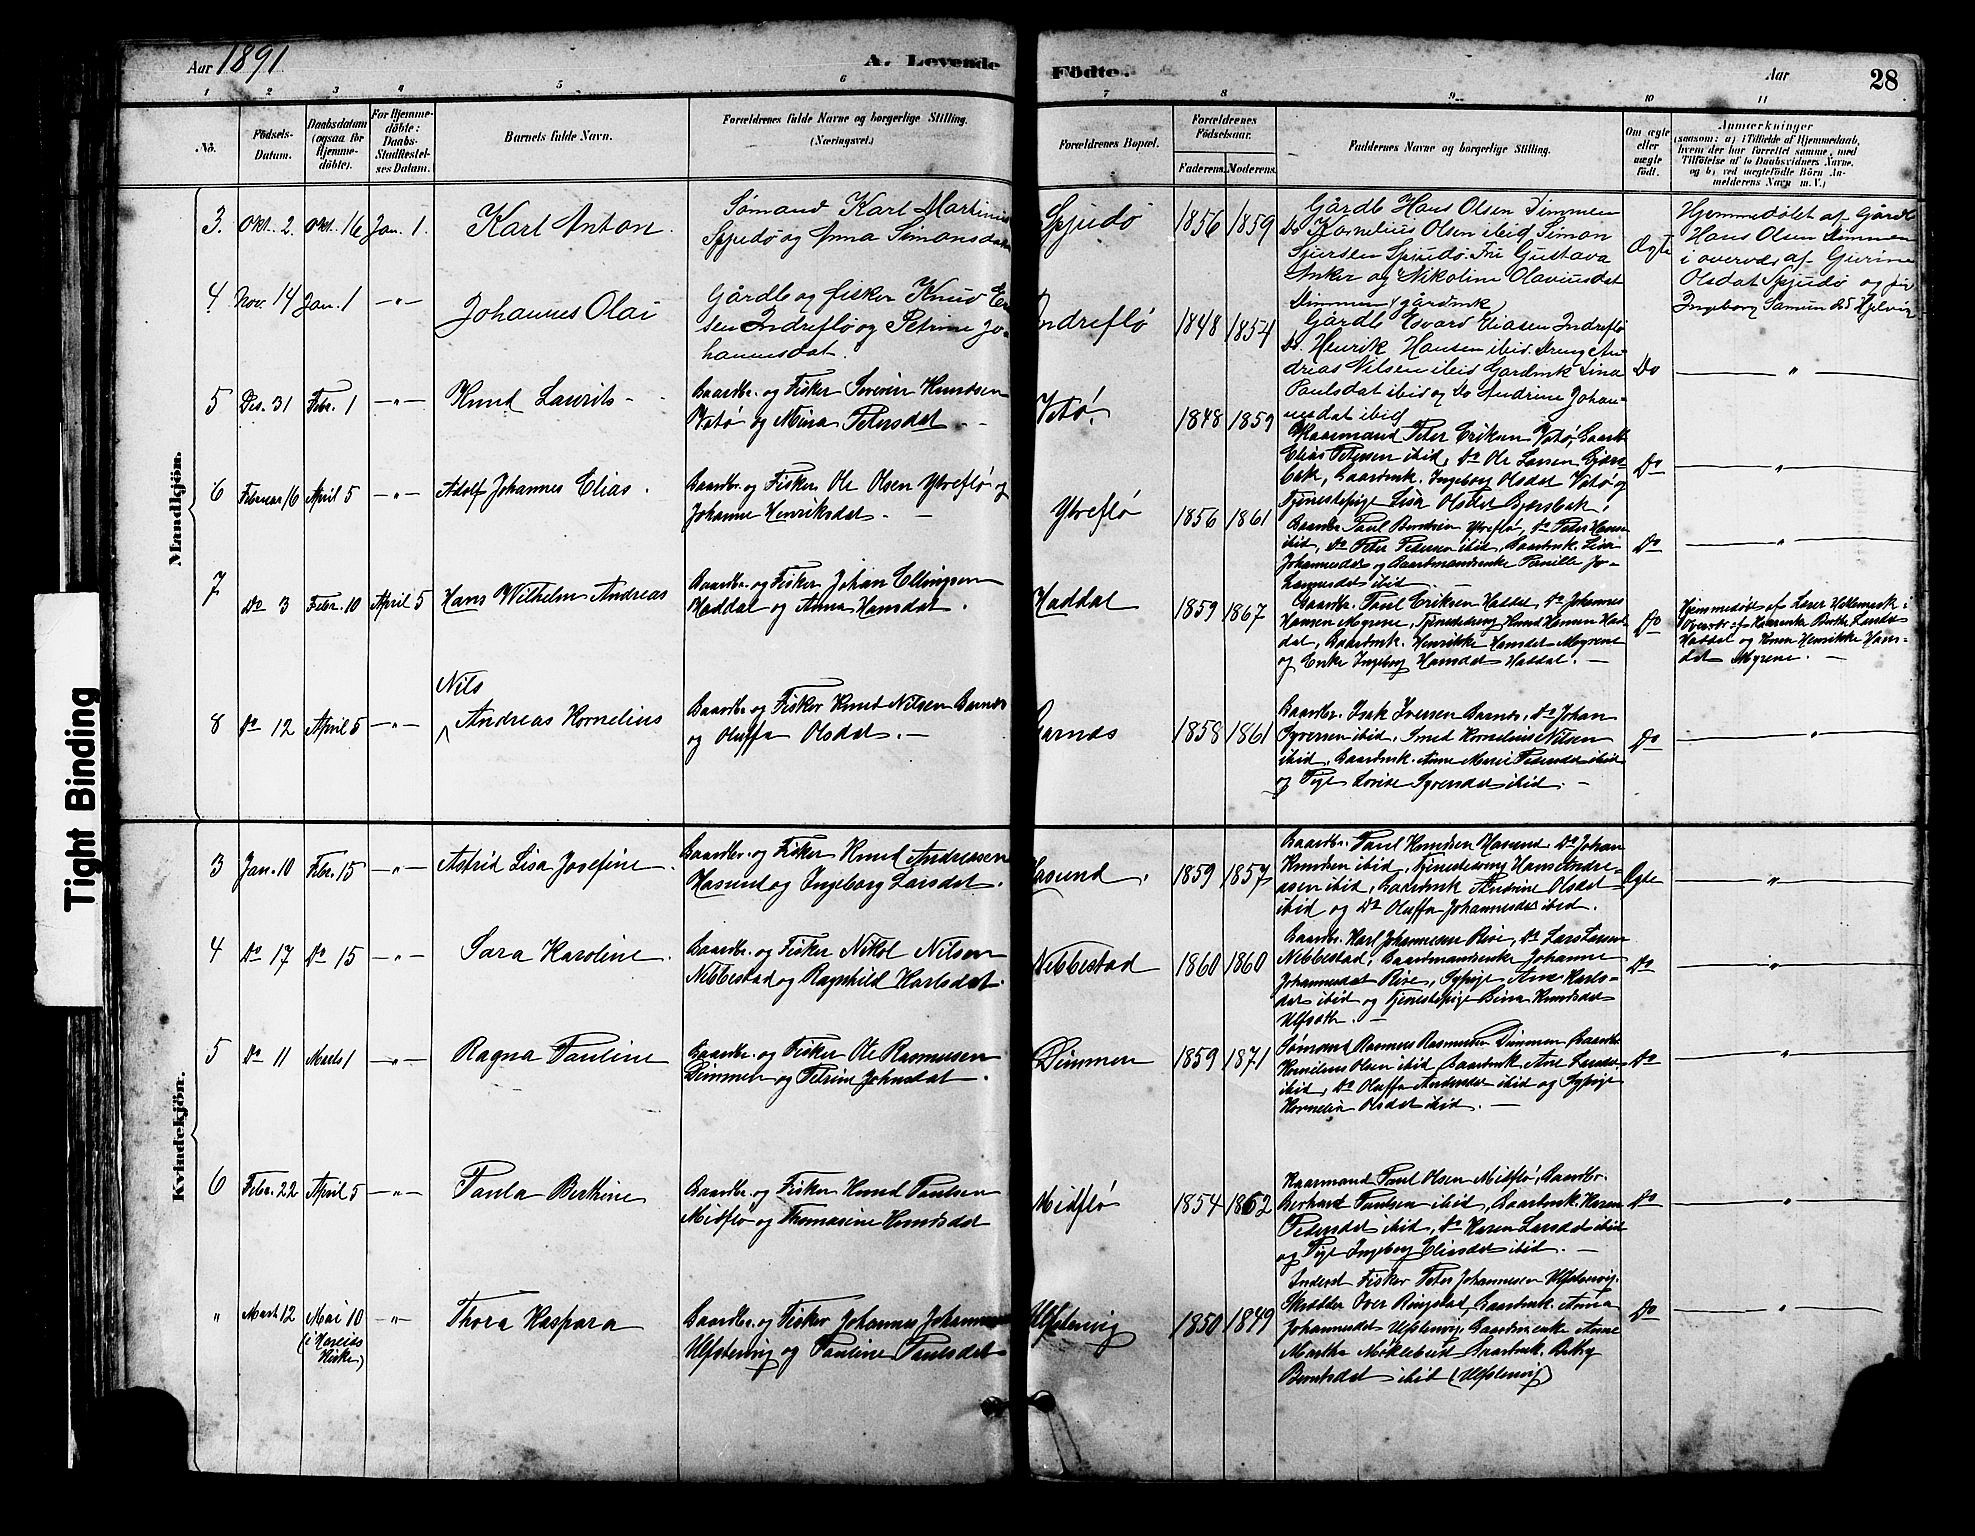 Aar 1891 A. Levende Födte. Aar 28
1 2 3 4 5 6 7 8 9 10 11
No.
Födsels-
Datum.
Daabsdatum
(ogsaa for
Hjemme-
döbte).
For Hjemme-
döbte:
Daabs-
Stadfæstel-
ses Datum.
Barnets fulde Navn.
Forældrenes fulde Navne og borgerlige Stilling.
(Næringsvei.)
Forældrenes Bopæl.
Forældrenes
Födselsaar.
Faderens. Moderens.
Faddernes Navne og borgerlige Stilling.
Om ægte
eller
uægte
födt.
Anmærkninger
(saasom: a) i Tilfælde af Hjemmedaab,
hvem der har forrettet samme, med
Tilföielse af to Daabsvidners Navne,
og b) ved uægtefödte Börn An-
melderens Navn m. V.)
Mandkjön.
3. Okt. 2 Okt. 16 Jan. 1. Karl Anton.
Sømand Karl Martinus
Spjudø og Anna Simonsdatter
Spjudø 1856 1859
Gårdb Hans Olsen Dimmen
Do Kornelius Olsen ibid Simon
Sjursen Spjudø. Fru Gustava
Anker og Nikoline Olaviusdat
Dimmen (gårdmk)
Ægte
Hjemmedøbt af Gårdb
Hans Olsen Dimmen
i overvær af Gurine
Olsdat Spjudø og
Ingeborg Samund
4 Nov. 14 Jan. 1 -"- Johannes Olai
Gårdb og fisker Knud
Indreflø og Petrine Jo-
hannesdat.
Indreflø 1848 1854
Gårdb Edvard Eliasen Indreflø
Do. Henrik Hansen ibid. Dreng An-
drias Nilsen ibid Gardmk Lina
Paulsdat ibid og Do Andrine Johan-
nesdat ibid
Do "
5 Des. 31 Febr. 1 -"- Knud Laurits
Gaardbr. og Fisker Severin Knudsen
Votø og Mina Petersdat
Votø 1848 1859
Kaarmand Peter Eriksen Votø, Gaardb
Elias Petersen ibid, Do Ole Larsen
Gaardmk. Ingeborg Olsdat Votø og
Tjenestepige Lisa Olsdat
Do "
6 Februar 16 April 5 -"- Adolf Johannes Elias.
Gaardbr. og Fisker Ole Olsen Ytreflø og
Johanne Henriksdat.
Ytreflø 1856 1861
Gaardbr. Paul Berntsen Ytreflø, Do Peder Hansen
ibid, Do Peter Pedersen ibid, Gaardmk. Lisa
Johannesdat og Gaardmandsenke Pernille Jo-
hannesdat ibid
Do "
7 Do 3 Febr. 10 April 5 Hans Wilhelm Andreas
Gaardbr. og Fisker Johan Ellingsen
Haddal og Anna Hansdat.
Haddal 1859 1867
Gaardbr. Paul Eriksen Haddal, Do Johannes
Hansen Myrene, Tjenestedreng Knud Hansen Had-
dal, Gaardmk. Henrikke Hansdat Myrene
og Enke Ingeborg Hansdat Haddal.
Do
Hjemmedøbt af Lærer
Overvær af Berthe Larsdat
Haddal og Henrikke Hans-
dat Myrene.
8 Do 12 April 5 -"- Nils
Andreas Kornelius
Gaardbr. og Fisker Knud Nilsen Garnæs
og Oluffa Olsdat.
Garnæs 1858 1861
Gaardbr. Isak Iversen Garnæs, Do Johan
Syversen ibid, Smed Kornelius Nilsen
ibid, Gaardmk. Anne Marie Pedersdat ibid
og Pige Lovise Syversdat ibid.
Do "
Kvindekjön.
3 Jan. 10 Febr. 15 -"- Astrid Lisa Josefine.
Gaardbr. og Fisker Knud Andreasen
Hasund og Ingeborg Larsdat.
Hasund. 1859 1857
Gaardbr. Paul Knudsen Hasund, Do Johan
Knudsen ibid, Tjenestedreng Hans Andre-
asen ibid, Gaardmk Andrine Olsdat
ibid og Do Oluffa Johannesdat ibid.
Ægte "
4 Do 17 Do 15 -"- Sara Karoline.
Gaardbr. og Fisker Nikol Nilsen
Nebbestad og Ragnhild Karlsdat.
Nebbestad 1860 1860
Gaardbr. Karl Johannesen Rise, Do Lars Larsen
Nebbestad, Gaardmandsenke Johanne
Johannesdat Rise, Sypige Ane Karls-
dat ibid og Tjenestepige Lina Knudsdat
Ulfsæth.
Do "
5 Do 11 Marts 1 -"- Ragna Pauline
Gaardbr. og Fisker Ole Rasmussen
Dimmen og Petrine Johnsdat.
Dimmen 1859 1871
Sømand Rasmus Rasmussen Dimmen Gaardbr
Kornelius Olsen ibid Gaardmk Ane Larsdat
ibid, Do Oluffa Andersdat ibid og Sypige
Kornelia Olsdat ibid.
Do "
6 Febr. 22 April 5 -"- Paula Berthine
Gaardbr. og Fisker Knud Paulsen
Midflø og Thomasine Knudsdat
Midflø 1854 1862
Kaarmand Paul Olsen Midflø, Gaardbr.
Berhard Paulsen ibid, Gaardmk. Karen
Pedersdat ibid, Do Karen Larsdat ibid
og Pige Ingeborg Eliasdat ibid.
Do "
" Marts 12 Mai 10
(i Hareids
Kirke)
-"- Thora Kaspara
Gaardbr. og Fisker Johannes Johannesen
Ulfstenvig og Pauline Paulsdat
Ulfstenvig 1850 1849
Inderst Fisker Peter Johannesen Ulfstenvig.
Skrædder Iver Ringstad, Gaardmk. Anna
Johannesdat Ulfstenvig, Gaardmenke Anne
Martha Möklebust Gaardmk. Bethy
Berntsdat ibid (Ulfstenvig)
Do "
Tight Binding